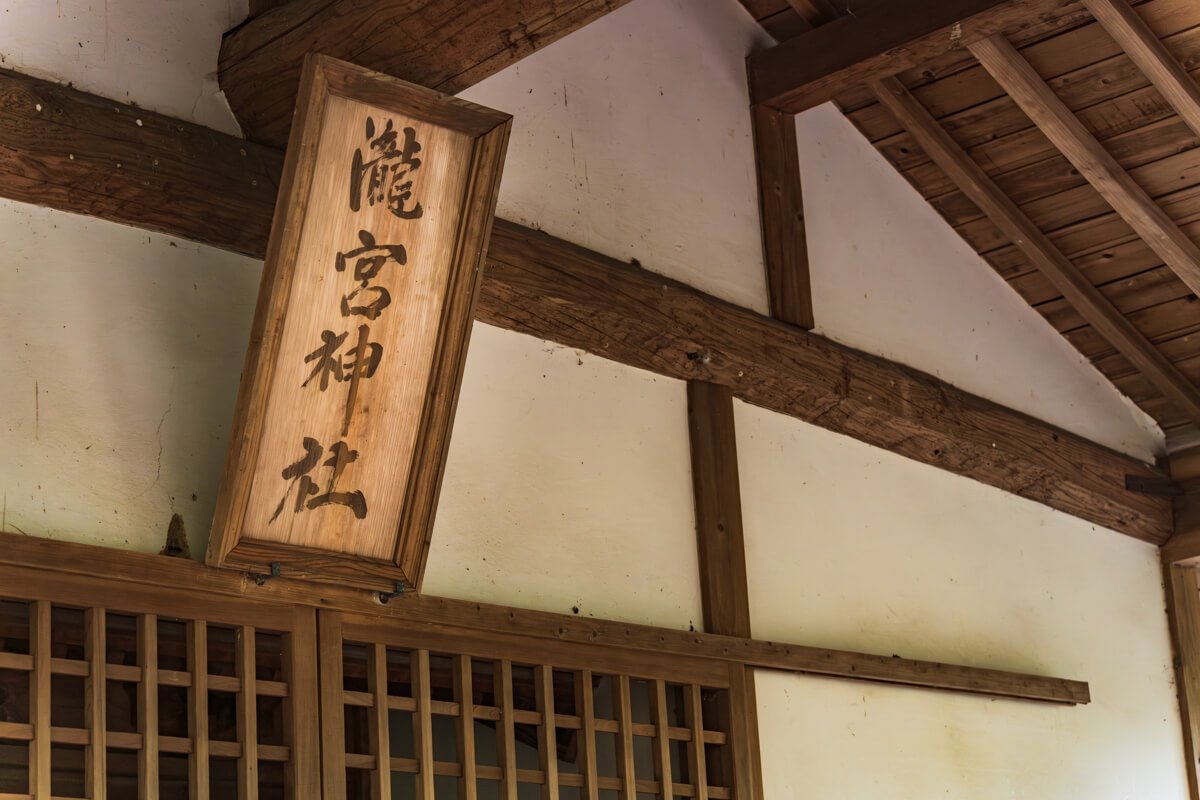 瀧宮神社